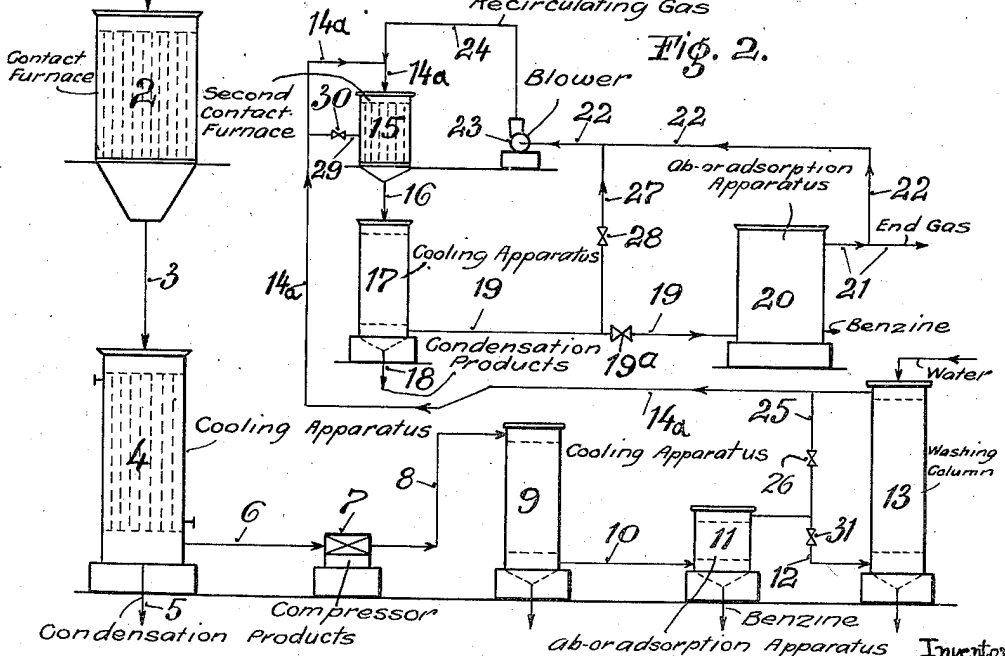 Recirculating Gas
Fig. 2.
14a
24
Contact
Furnace
2
14a
Blower
Second
Contact
Furnace
30
15
23
22
22
29
Ab-oradsorption
Apparatus
16
27
22
28
End Gas
3
14a
17
Cooling Apparatus
19
19
20
21
Benzine
Condensation
Products
18
19a
Water
14a
25
Cooling Apparatus
4
8
Cooling Apparatus
26
Washing
Column
13
9
7
6
10
11
31
12
5
Compressor
Benzine
Condensation Products
Ab-oradsorption Apparatus
Inventor